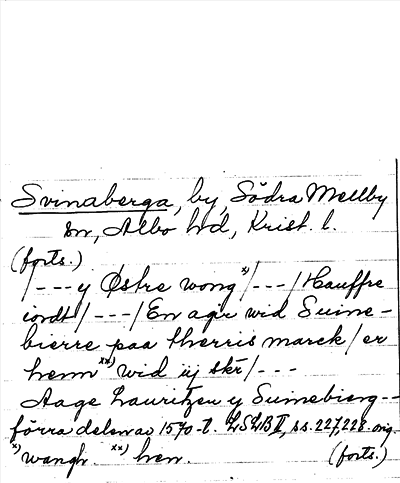 Svinaberga, by, Södra Mellby
sn, Albo hd, Krist. l.
(forts.)
/---y Østre wong x)/---/Hauffre
iordt/---/En ager wid Suine-
bierre paa Therris marck/er
henn xx) wid iij skr/---
Aage Lauritzen y Suinebierg--
förra delen av 1570-t. LSLB II, ss. 227, 228. orig.
x) wangh. xx) hen. (forts.)